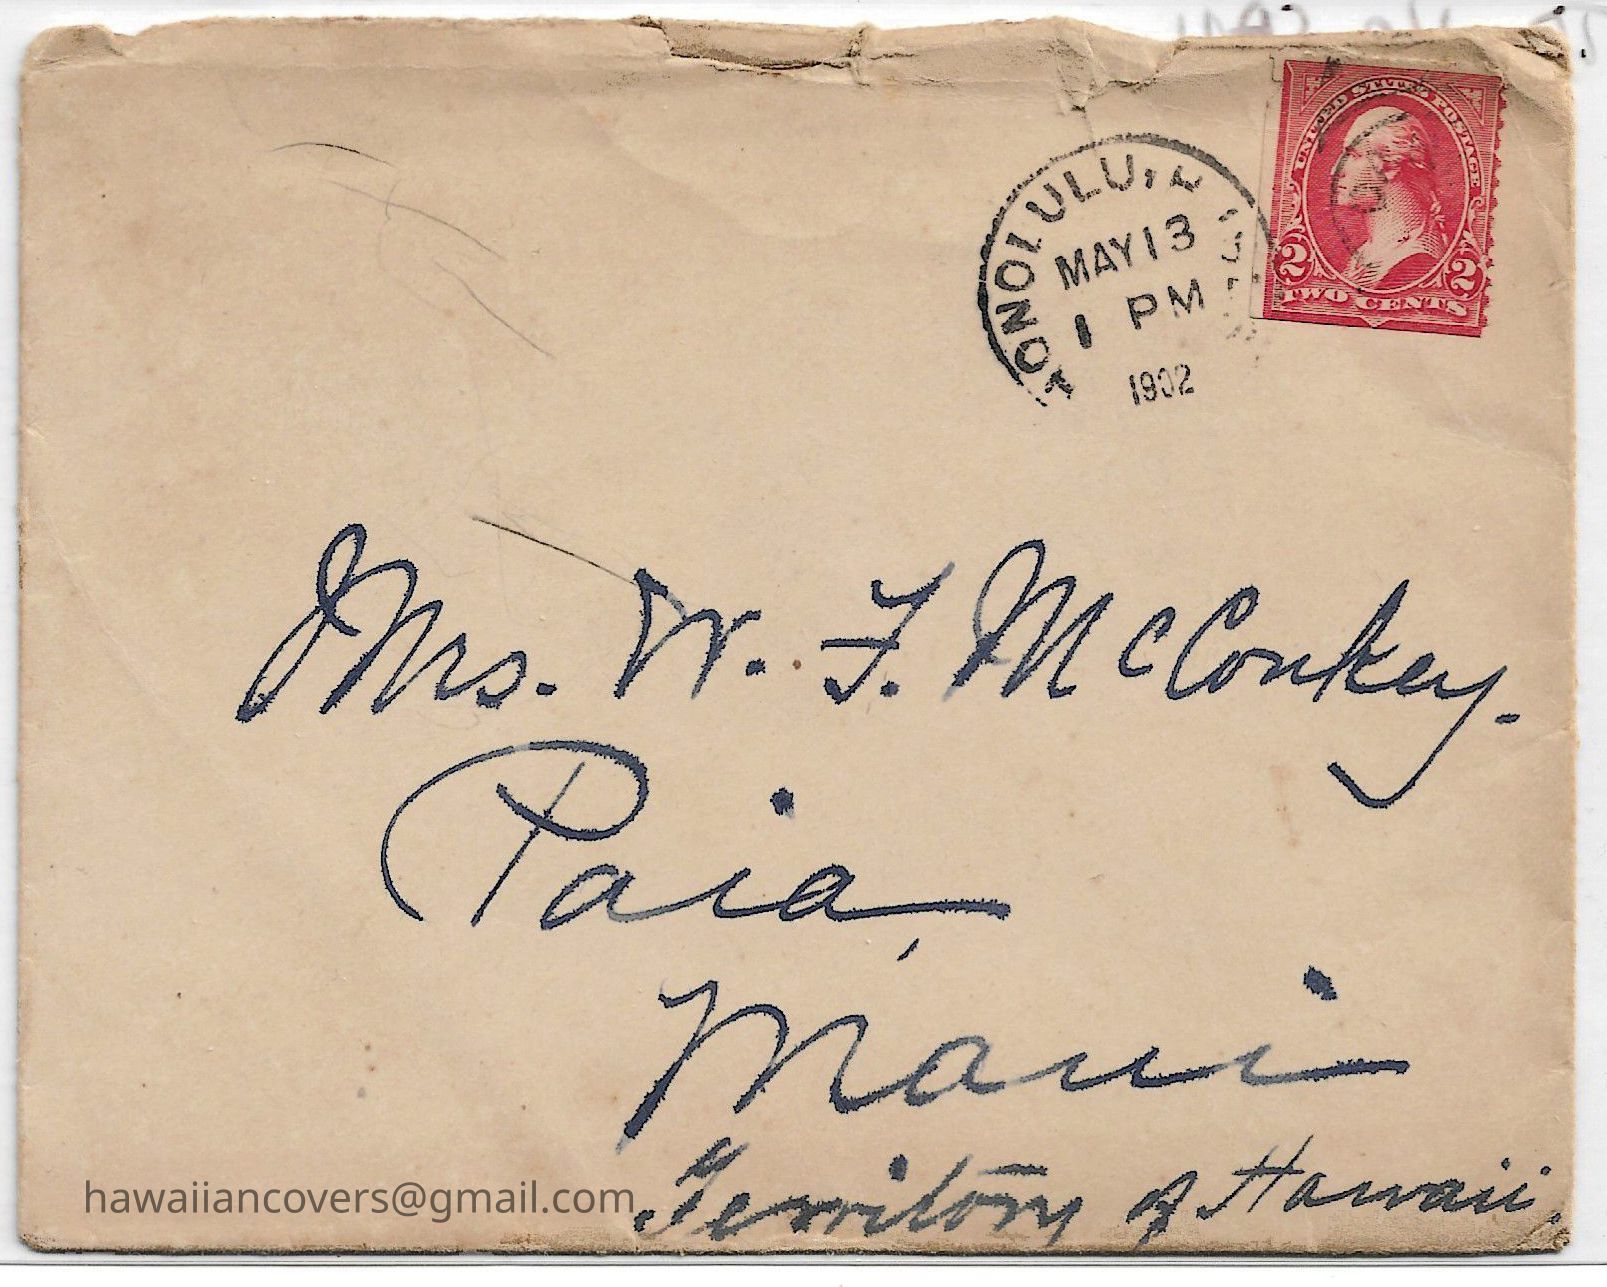 UNITED STATES POSTAGE
2 2
TWO CENTS
HONOLULU,
MAY 13
1 PM
1902
Mrs. W. F. McConkey.
Paia,
Maui
Territory of Hawaii.
hawaiiancovers@gmail.com